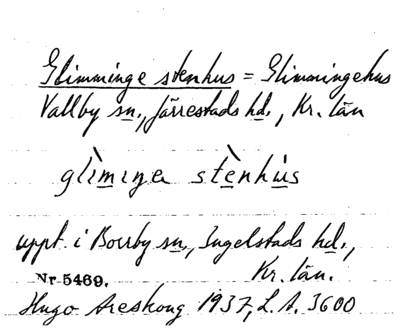 Glimminge stenhus = Glimmingehus
Vallby sn., Järrestads hd., Kr. län
glìmıŋa stènhus
uppt. i Borrby sn., Ingelstads hd.,
Nr 5469. Kr. län.
Hugo Areskoug 1937, L.A. 3600